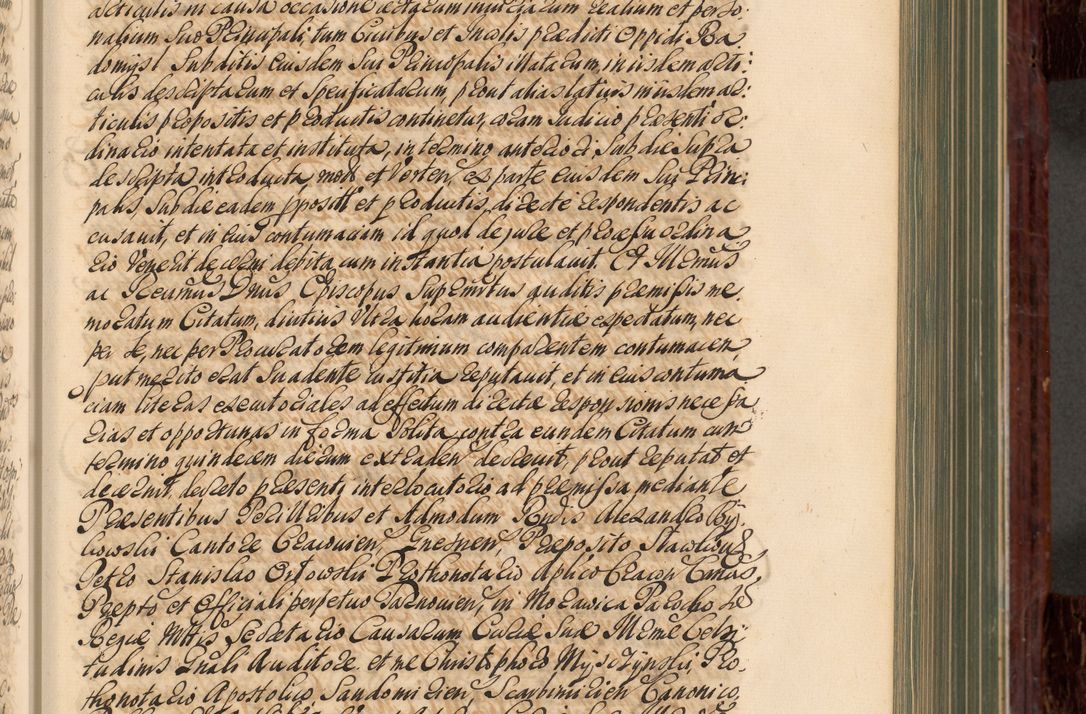 articulis in causa occasione actarum injuriarum realium et perso-
nalium suo Principali tum Civibus et Incolis praedicti Oppidi Ra
domysl Subditis eiusdem Sui Principalis illatarum in iisdem arti:
culis descriptarum et Specificatarum prout alias latius in iisdem ar:
ticulis propositis et productis continetur, coram Judicio praesenti or:
dinario intentata et instituta, in termino anteriori Sub die Supra
descripta introducta, mod et Verten, ex parte eiusdem Sui Prin:
palis, Sub die eadem ppositi et productis, directe respondentis ac
cusavit, et in eius contumaciam id quod de jure et praefu ordina
rio Venerit decerni debita cum instantia postulavit. Et Illmus
ac Revmus Dnus Episcopus Suprenitus auditis praemissis me
moratum Citatum, diutius Ultra horam audientiae expectatum, nec
per se, nec per Procuratorem legitimum comparentem contumacem,
put merito erat Suadente iustitia reputavit, et in eius contuma
ciam literas executoriales ad effectum directae responsionis necessa
rias et opportunas in forma Solita contra eundem Citatum cum
termino quindecem dierum extraden decrevit, prout reputat et
decernit, decreto praesenti interlocutorio ad praemissa mediante
Praesentibus Perillribus et Admodum Rndis Alexandro By
kowski Cantore Cracovien, Gnesnen, Praeposito Stawkovien
Petro Stanislao Orłowski Prothonotario Aplico Cracov Canas,
Praepto et Officiali perpetuo Tarnovien, in Morawica Parocho Sae
Regiae Mttis Secretario Causarum Curiae Suae Illmae Celsi
tudinis Gnali Auditore et me Christophoro Myszczynski, Pro
thonotario Apostolico, Sandomirien, Scarbimirien Canonico,